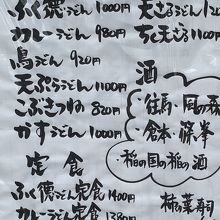 ふく徳うどん 1100円
カレーうどん 980円
鳥うどん 920円
天ぷらうどん 1100円
こぶきつね 820円
かすうどん 1000円
定食
ふく徳うどん定食 1400円
カレーうどん定食 1380
天ざるうどん 120
ちく天ざる 1100円
酒
・往馬・風の森
・倉本・篠峯
・稲の国の稲の酒
柿葉寿司